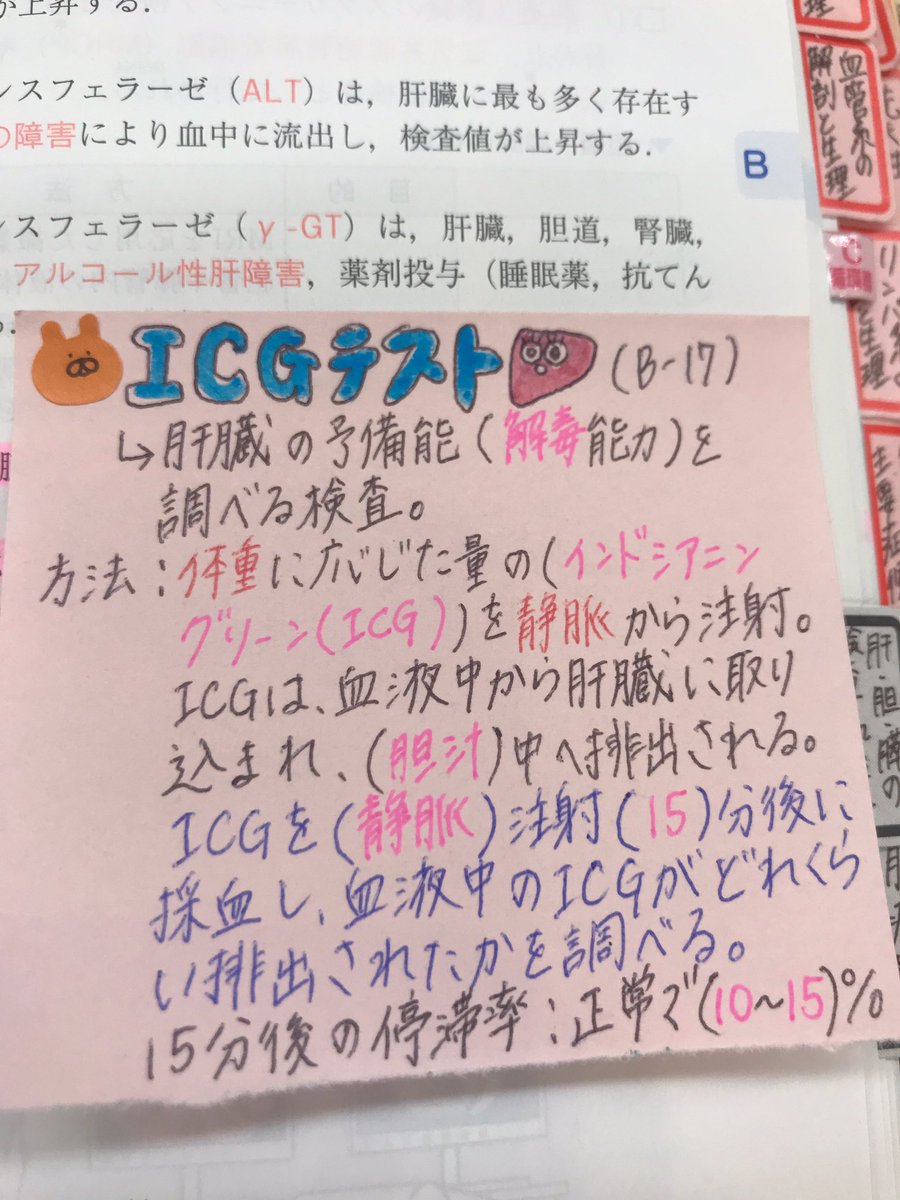 が上昇する.
ンスフェラーゼ（ALT）は，肝臓に最も多く存在す
の障害により血中に流出し，検査値が上昇する.
B
ンスフェラーゼ（γ-GT）は，肝臓，胆道，腎臓，
アルコール性肝障害，薬剤投与（睡眠薬，抗てん
ICGテスト (B-17)
↳肝臓の予備能(解毒能力)を
調べる検査。
方法：体重に応じた量の(インドシアニン
グリーン(ICG))を静脈から注射。
ICGは、血液中から肝臓に取り
込まれ、(胆汁)中へ排出される。
ICGを(静脈)注射(15)分後に
採血し、血液中のICGがどれくら
い排出されたかを調べる。
15分後の停滞率：正常で(10~15)%
血管系の
解剖と生理